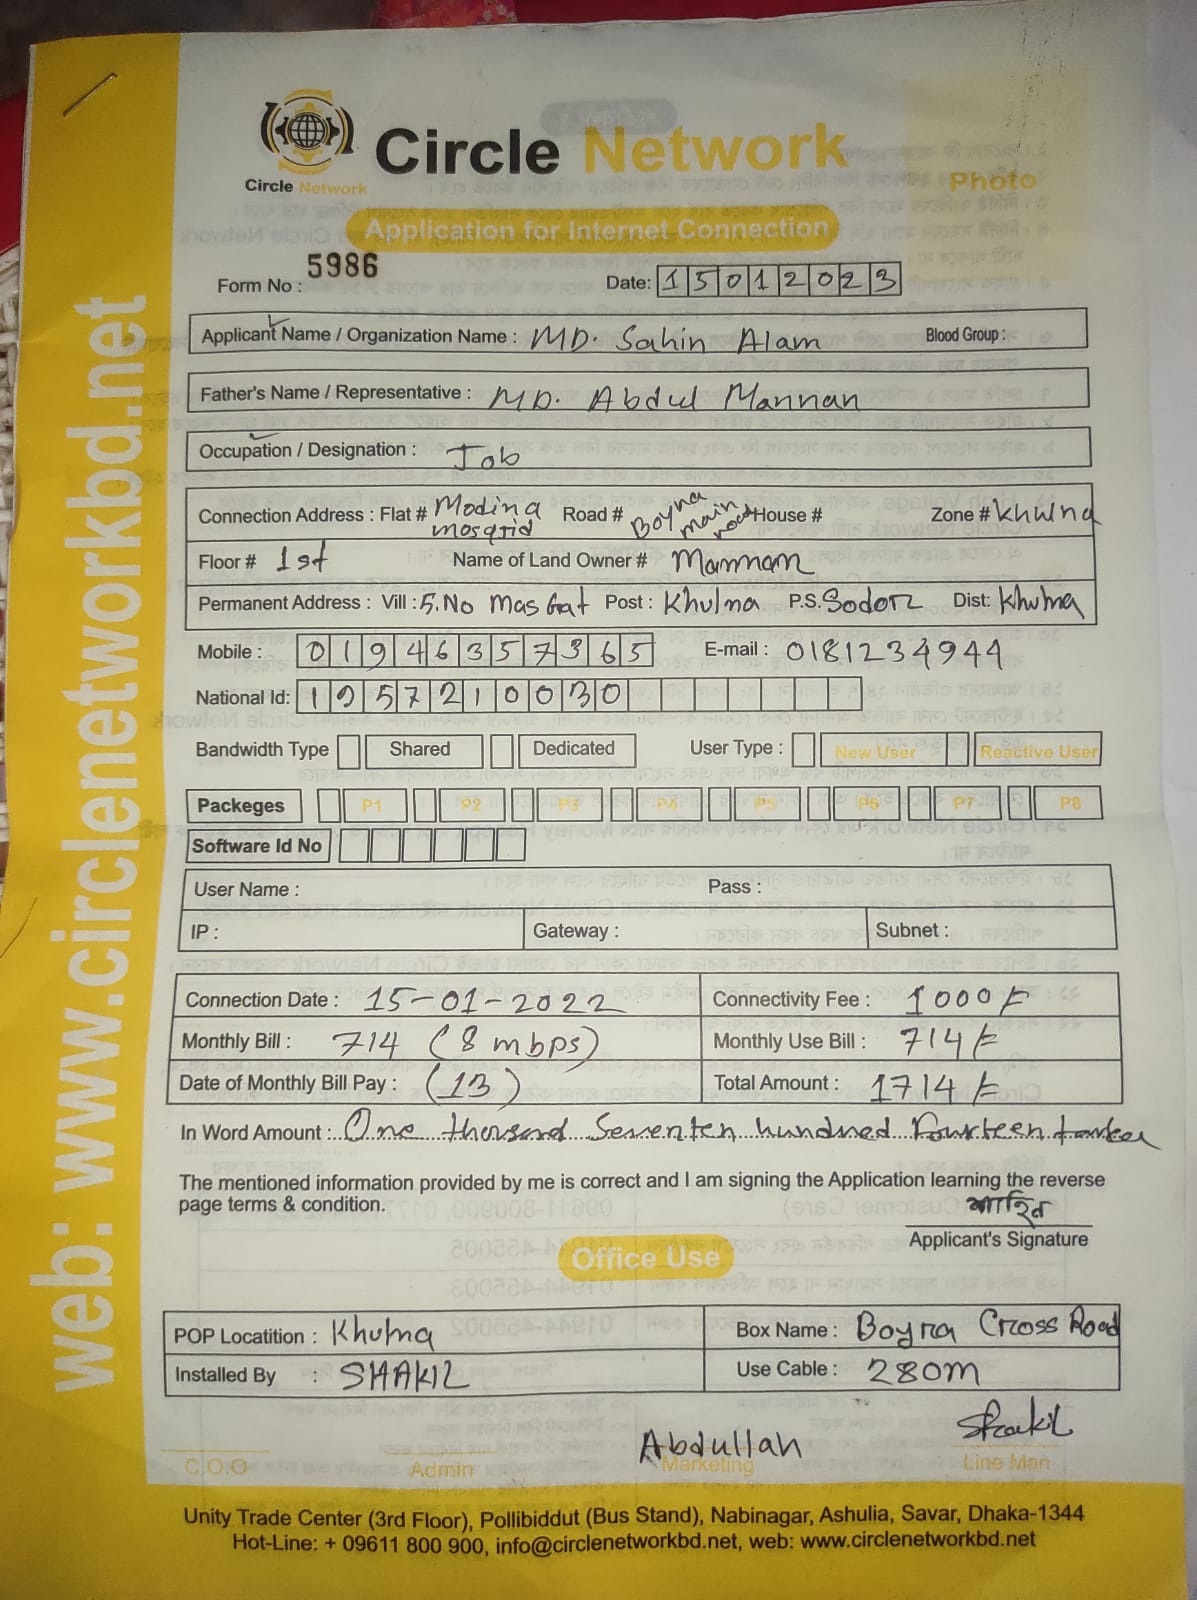 web: www.circlenetworkbd.net
Circle Network
Circle Network
Photo
Application for Internet Connection
Form No : 5986
Date: 15012023
Applicant Name / Organization Name : MD. Sahin Alam Blood Group :
Father's Name / Representative : MD. Abdul Mannan
Occupation / Designation : Job
Connection Address : Flat # Modina mosqrid Road # Boyna main road House # Zone # Khulna
Floor # 1st Name of Land Owner # Mannan
Permanent Address : Vill : 5. No Mas Gat Post : Khulna P.S. Sodor Dist: Khulna
Mobile : 01946357365 E-mail : 0181234944
National Id: 1957210030
Bandwidth Type Shared Dedicated User Type : New User Reactive User
Packeges P1 P2 P3 P4 P5 P6 P7 P8
Software Id No
User Name : Pass :
IP : Gateway : Subnet :
Connection Date : 15-01-2022 Connectivity Fee : 1000/=
Monthly Bill : 714 (8 mbps) Monthly Use Bill : 714/=
Date of Monthly Bill Pay : (13) Total Amount : 1714/=
In Word Amount : One thousend Seventen hundred Fourteen
The mentioned information provided by me is correct and I am signing the Application learning the reverse
page terms & condition.
শাহিন
Applicant's Signature
Office Use
POP Locatition : Khulna Box Name : Boyra Cross Road
Installed By : SHAKIL Use Cable : 280M
Abdullah Shakil
C.O.O Admin Marketing Line Man
Unity Trade Center (3rd Floor), Pollibiddut (Bus Stand), Nabinagar, Ashulia, Savar, Dhaka-1344
Hot-Line: + 09611 800 900, info@circlenetworkbd.net, web: www.circlenetworkbd.net